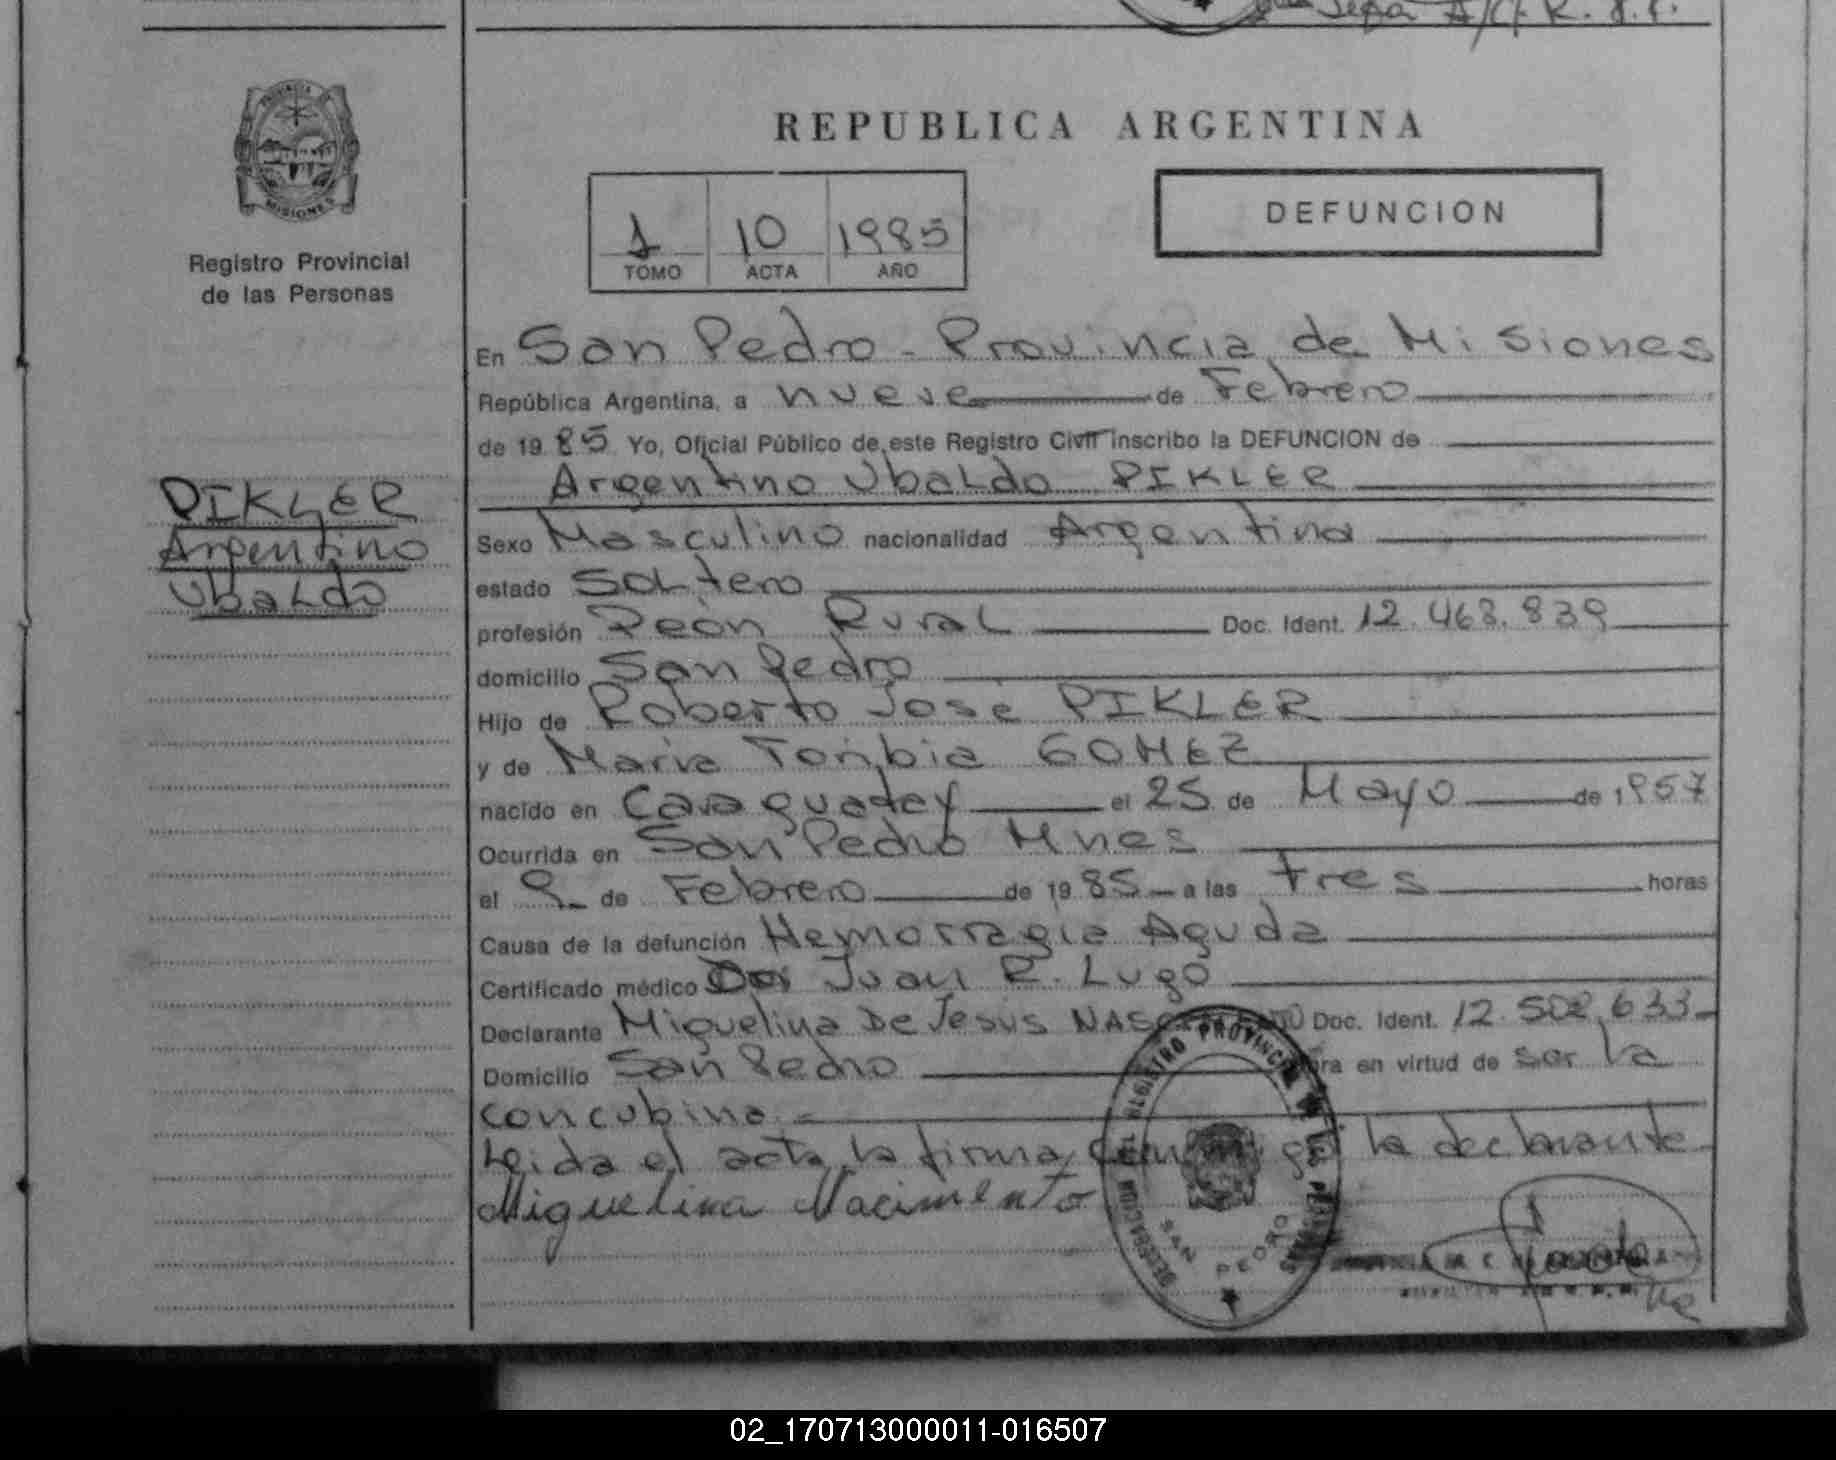 Jefa A/C. R. P. P.
PROVINCIA DE
MISIONES
Registro Provincial
de las Personas
REPUBLICA ARGENTINA
1 10 1985
TOMO ACTA AÑO
DEFUNCION
En San Pedro - Provincia de Misiones
República Argentina, a nueve de Febrero
de 1985 Yo, Oficial Público de este Registro Civil inscribo la DEFUNCION de
Argentino Ubaldo PIKLER
PIKLER
Argentino
Ubaldo
Sexo Masculino nacionalidad Argentina
estado Soltero
profesión Peón Rural Doc. Ident. 12.468.839
domicilio San Pedro
Hijo de Roberto José PIKLER
y de Maria Toribia GOMEZ
nacido en Caraguatay el 25 de Mayo de 1957
Ocurrida en San Pedro Mnes
el 9 de Febrero de 1985 a las tres horas
Causa de la defunción Hemorragia Aguda
Certificado médico Dor Juan R. Lugo
Declarante Miquelina De Jesus Doc. Ident. 12.502.633
Domicilio San Pedro en virtud de ser la
concubina.
Leida el acta la firma conmigo la declarante
Miguelina Nacimento
DELEGACION DEL REGISTRO PROVINCIAL DE LAS PERSONAS
SAN PEDRO
02_170713000011-016507